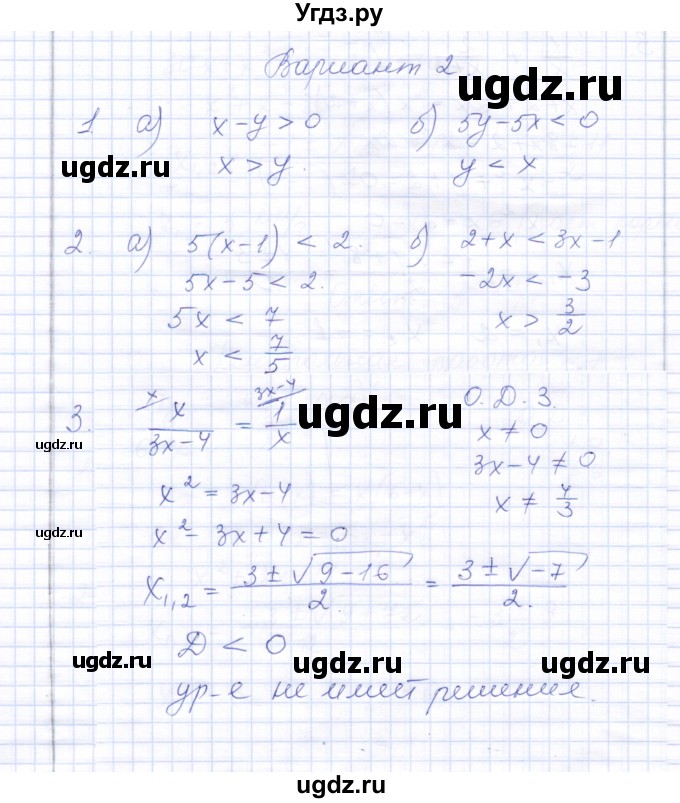 Угдз.ру
Вариант 2
1 а) x-y>0 б) 5y-5x<0
x>y. y<x
2. а) 5(x-1) < 2. б) 2+x<3x-1
5x-5<2. -2x<-3
5x < 7 x > 3/2
x < 7/5
3. x/ x/(3x-4) = 3x-4/ 1/x О.Д.З.
x≠0
3x-4≠0
x² = 3x-4 x ≠ 4/3
x²-3x+4=0
x₁,₂ = (3±√(9-16))/2. = (3±√(-7))/2.
Д < 0
ур-е не имеет решения.
ugdz.ru
ugdz.ru
ugdz.ru
ugdz.ru
ugdz.ru
ugdz.ru
ugdz.ru
ugdz.ru
ugdz.ru
ugdz.ru
ugdz.ru
ugdz.ru
ugdz.ru